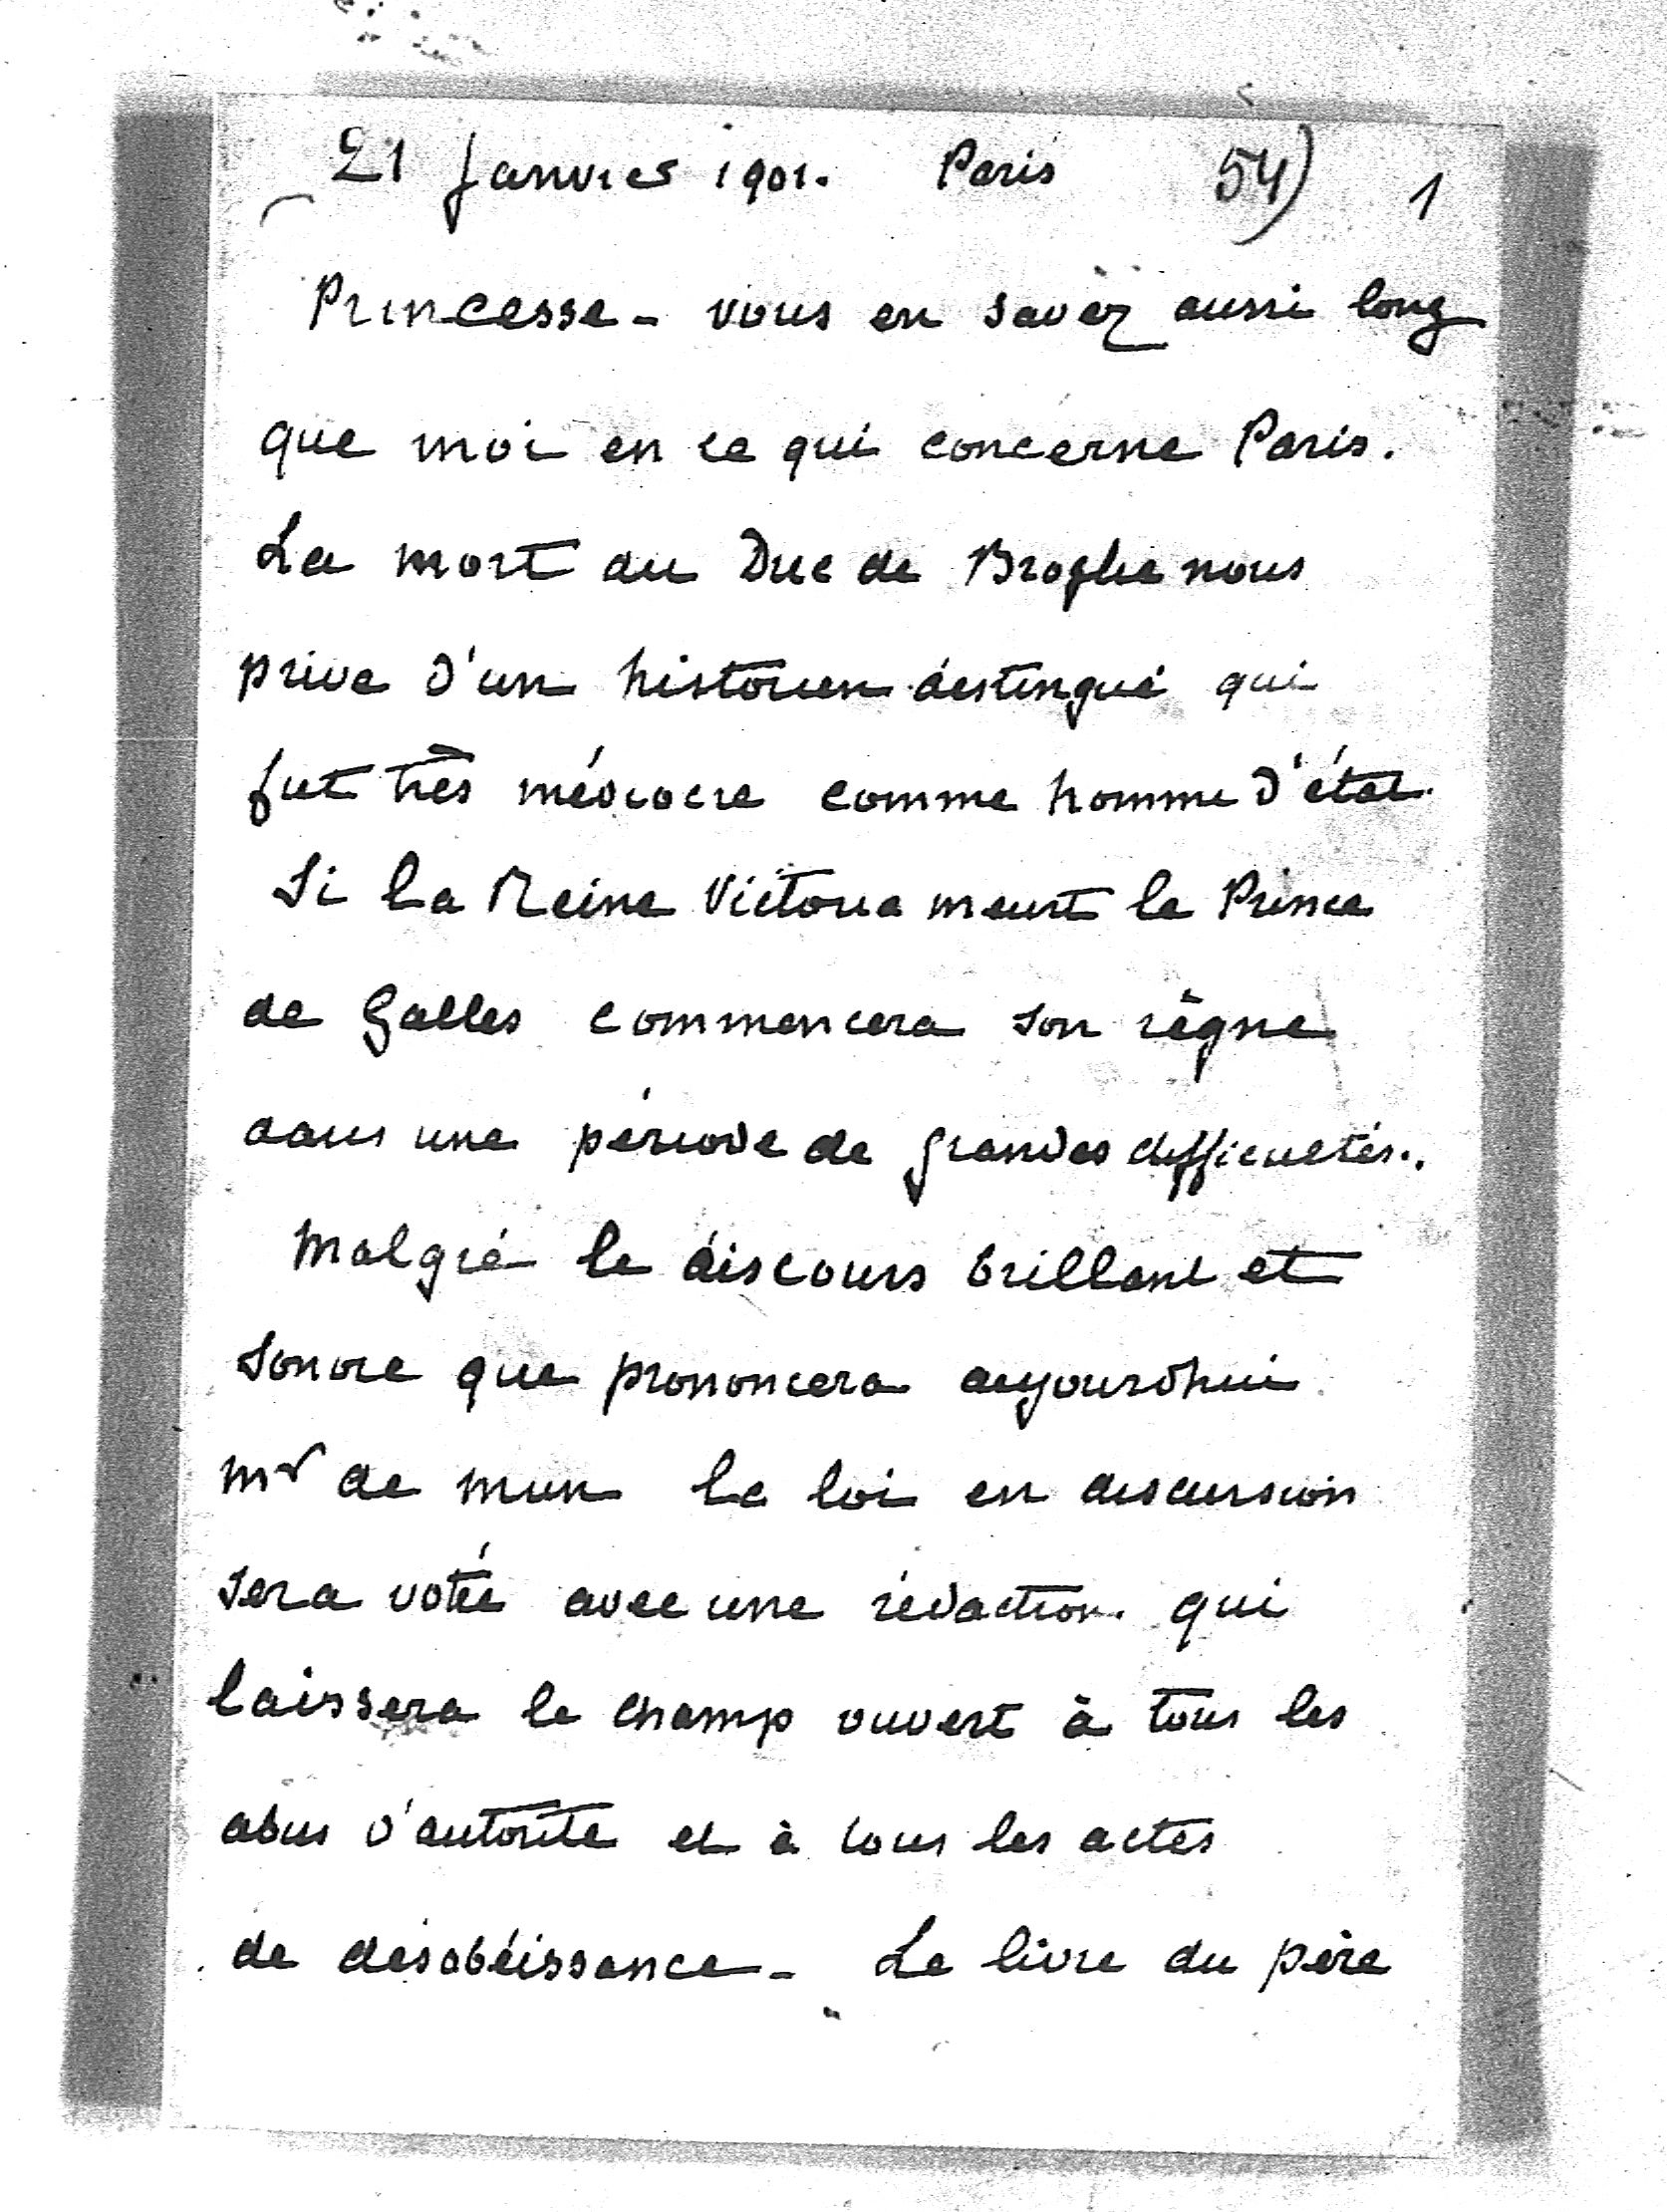 21 Janvier 1901. Paris 54) 1
Princesse - vous en savez aussi long
que moi en ce qui concerne Paris.
La mort du Duc de Broglie nous
prive d'un historien distingué qui
fut très médiocre comme homme d'état.
Si la Reine Victoria meurt le Prince
de Galles commencera son règne
dans une période de grandes difficultés.
Malgré le discours brillant et
sonore que prononcera aujourdhui
Mr de Mun la loi en discussion
sera votée avec une rédaction qui
laissera le champ ouvert à tous les
abus d'autorité et à tous les actes
de désobéissance - Le livre du père